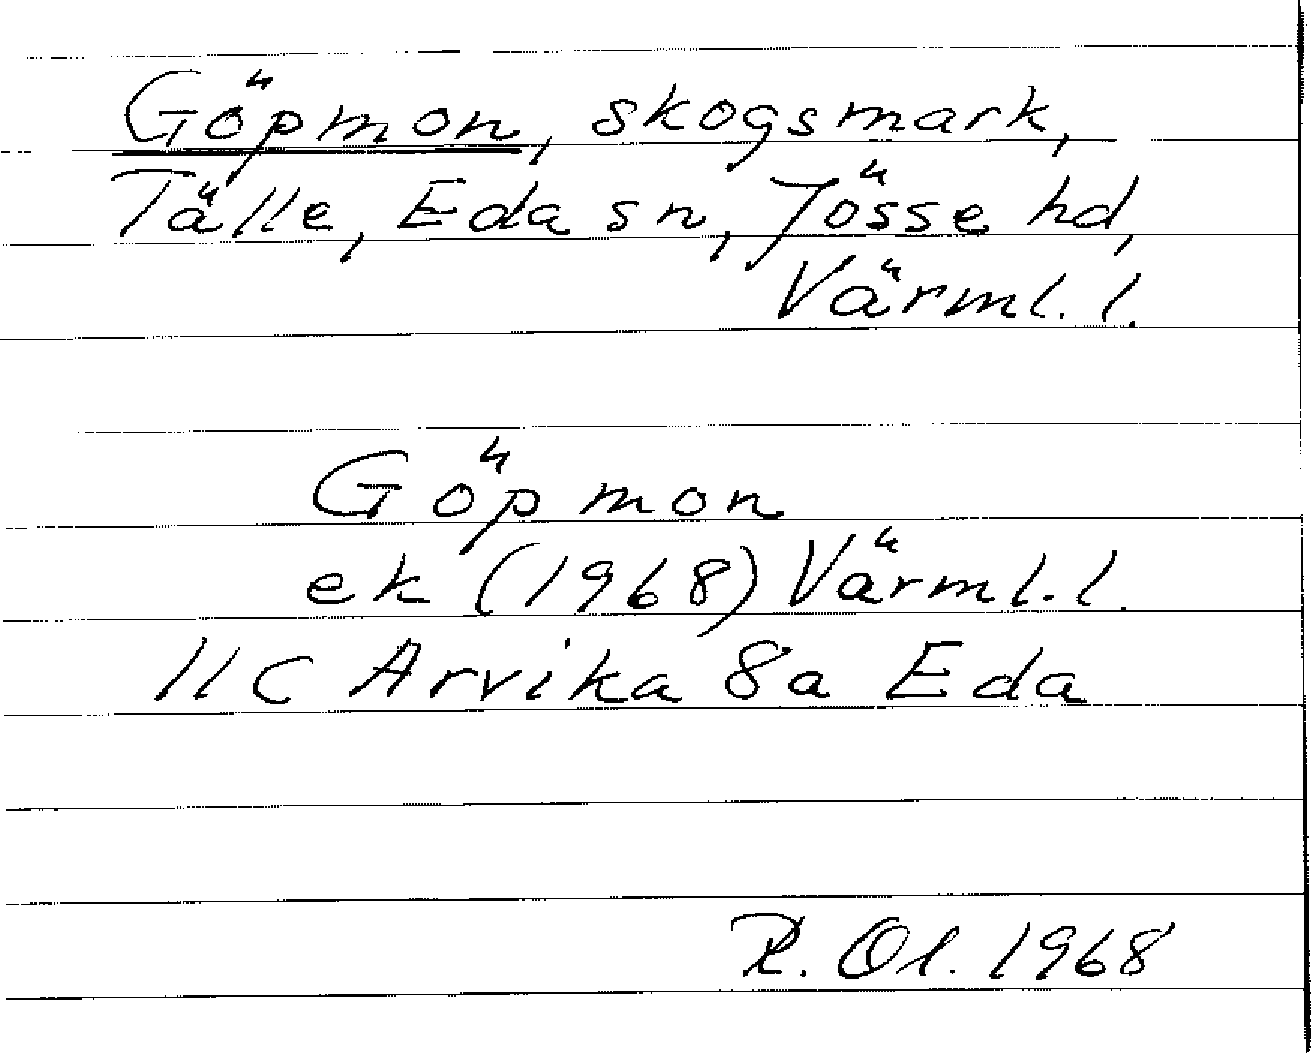 Göpmon, skogsmark,
Tälle, Eda sn, Jösse hd,
Värml. l.
Göpmon
ek (1968) Värml. l.
11 C Arvika 8a Eda
R. Ol. 1968